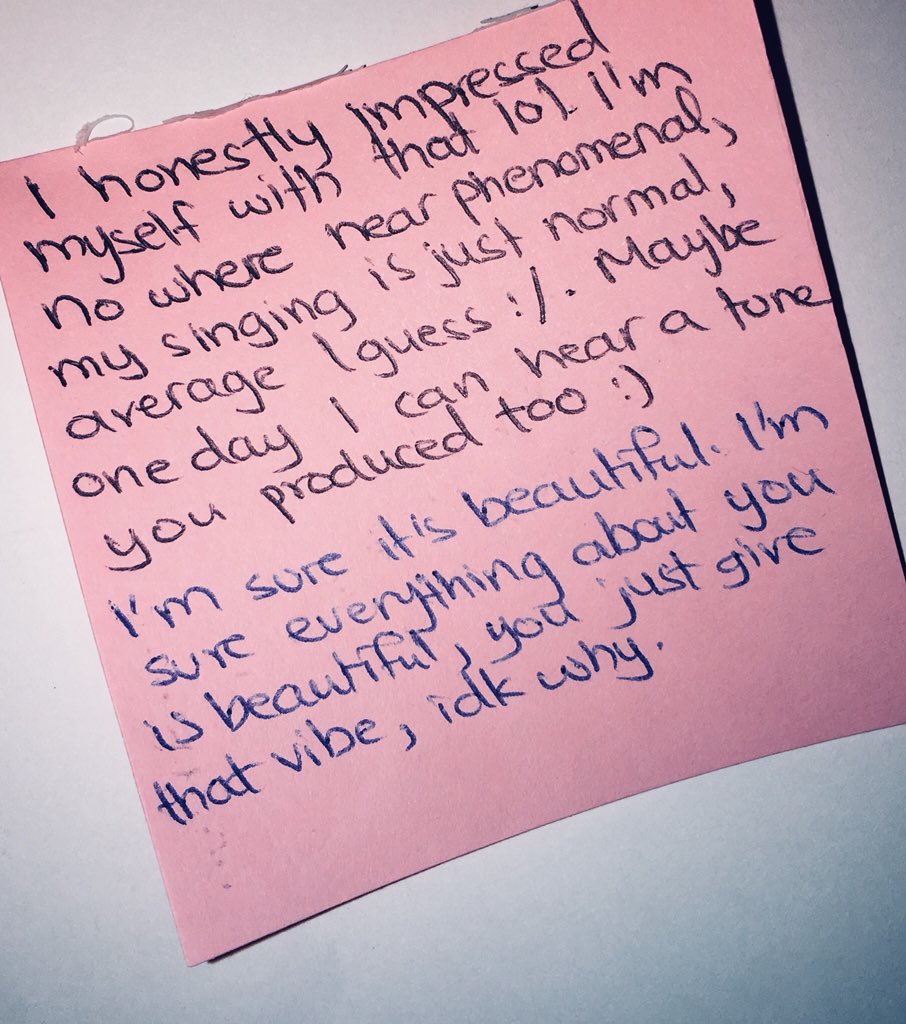 I honestly impressed
myself with that lol. I'm
no where near phenomenal,
my singing is just normal,
average I guess :/. Maybe
one day I can hear a tune
you produced too :)
I'm sure it's beautiful. I'm
sure everything about you
is beautiful, you just give
that vibe, idk why.